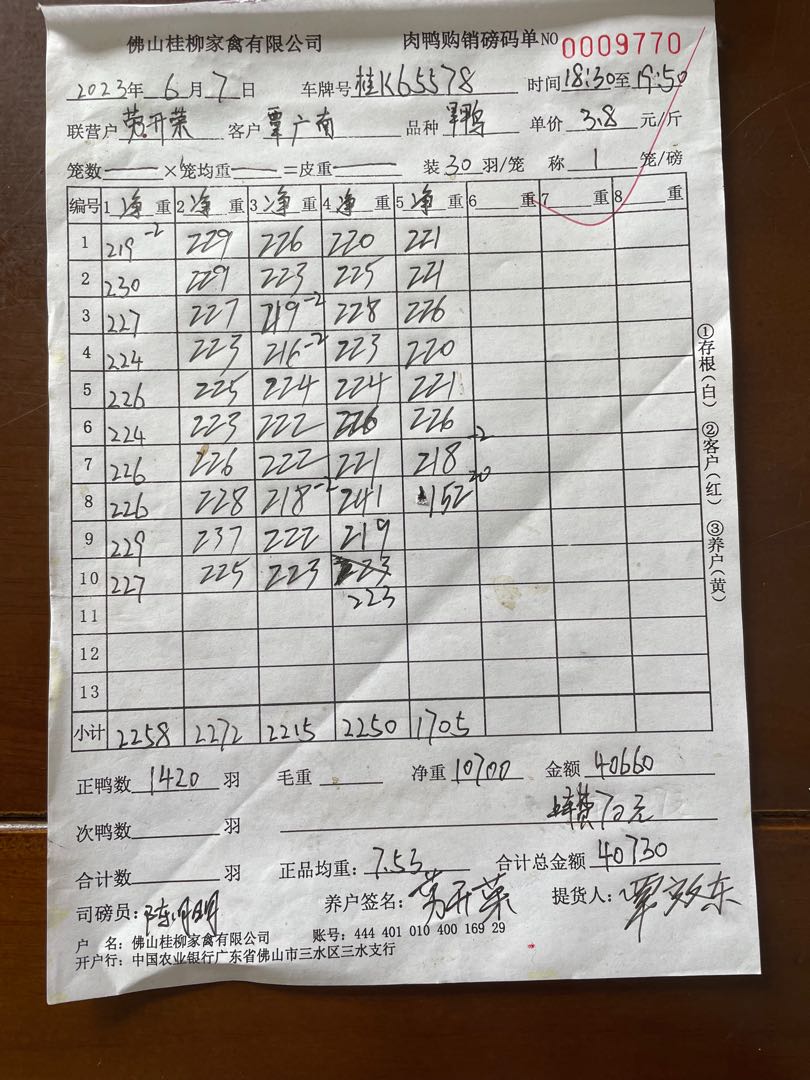 佛山桂柳家禽有限公司 肉鸭购销磅码单 NO 0009770
2023年 6月 7日 车牌号 桂K65578 时间 18:30至 19:50
联营户 开荣 客户 覃广南 品种 鸭 单价 3.8 元/斤
笼数 — ×笼均重 — =皮重 — 装 30 羽/笼 称 1 笼/磅
编号 1 净 重 2 净 重 3 净 重 4 净 重 5 净 重 6 重 7 重 8 重
1 219-2 229 226 220 221
2 230 229 223 225 221
3 227 227 219-2 228 226
4 224 223 216-2 223 220
5 226 225 224 224 221
6 224 223 222 226 226
7 226 226 222 221 218-2
8 226 228 218-2 241 152 20
9 229 237 222 219
10 227 225 223 223
11 223
12
13
小计 2258 2272 2215 2250 1705
正鸭数 1420 羽 毛重 净重 10700 金额 40660
次鸭数 羽 费70元
合计数 羽 正品均重: 7.53 合计总金额 40730
司磅员: 陈明 养户签名: 开荣 提货人: 覃效东
户 名: 佛山桂柳家禽有限公司 账号: 444 401 010 400 169 29
开户行: 中国农业银行广东省佛山市三水区三水支行
①存根(白) ②客户(红) ③养户(黄)